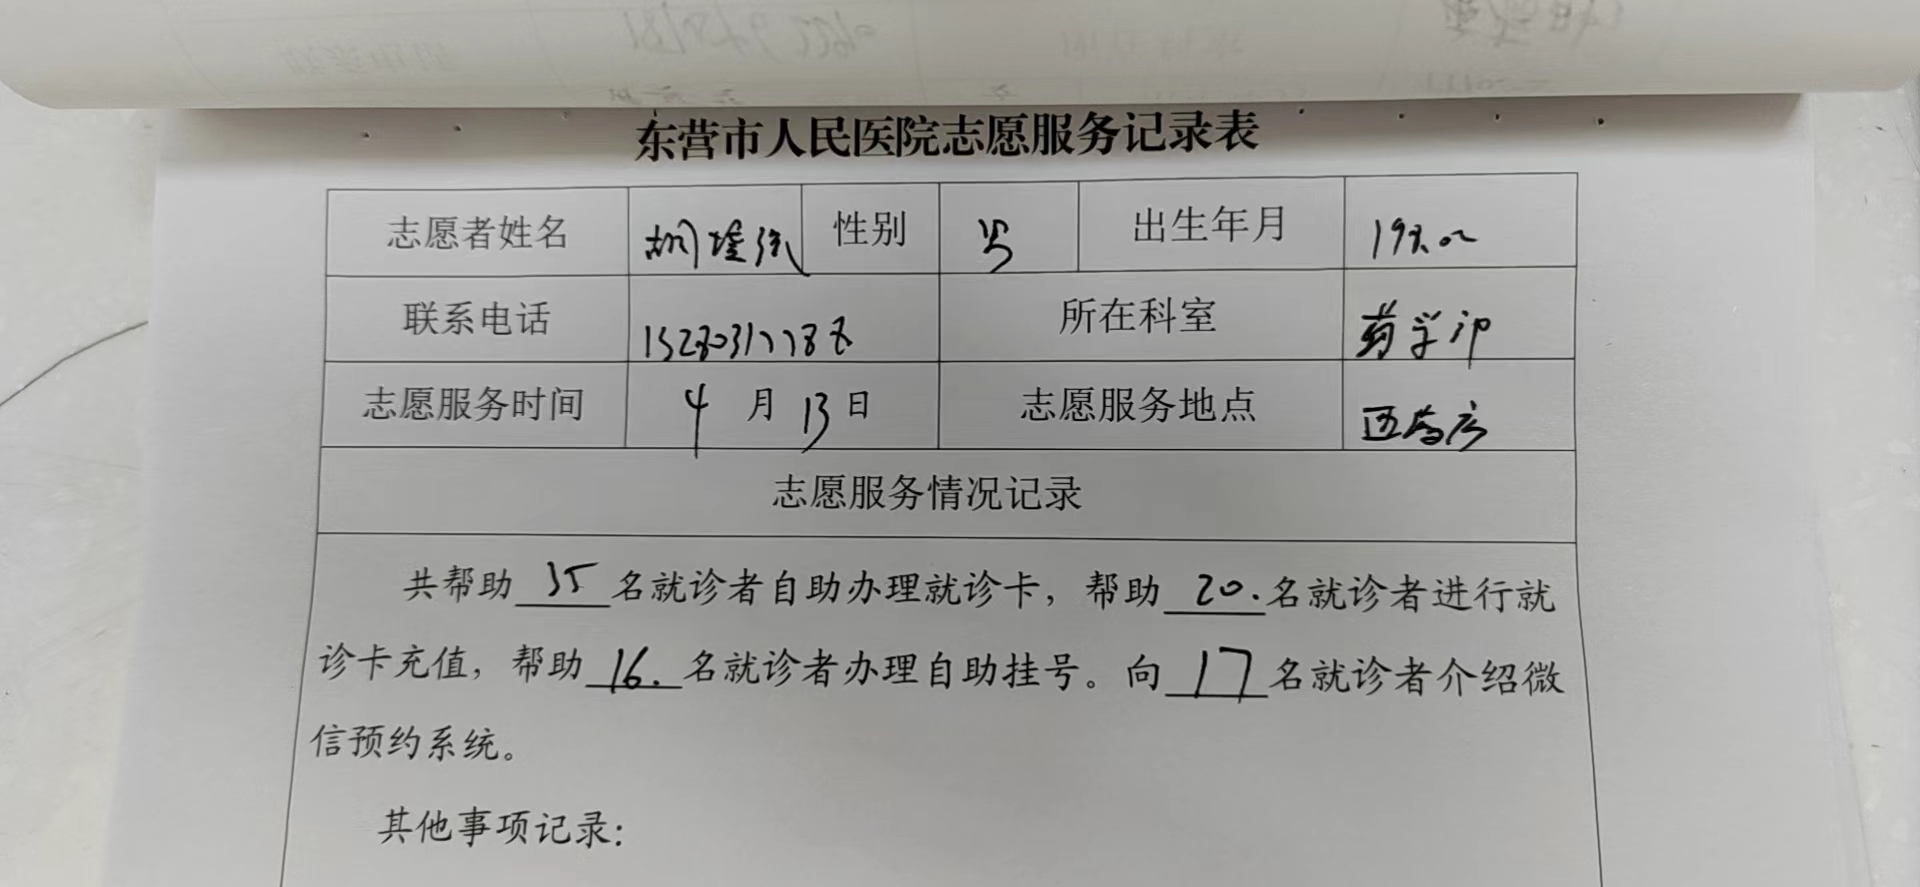 东营市人民医院志愿服务记录表
志愿者姓名 胡 性别 男 出生年月
联系电话 所在科室 药学部
志愿服务时间 4月13日 志愿服务地点 西药房
志愿服务情况记录
共帮助35名就诊者自助办理就诊卡，帮助20.名就诊者进行就
诊卡充值，帮助16.名就诊者办理自助挂号。向17名就诊者介绍微
信预约系统。
其他事项记录：